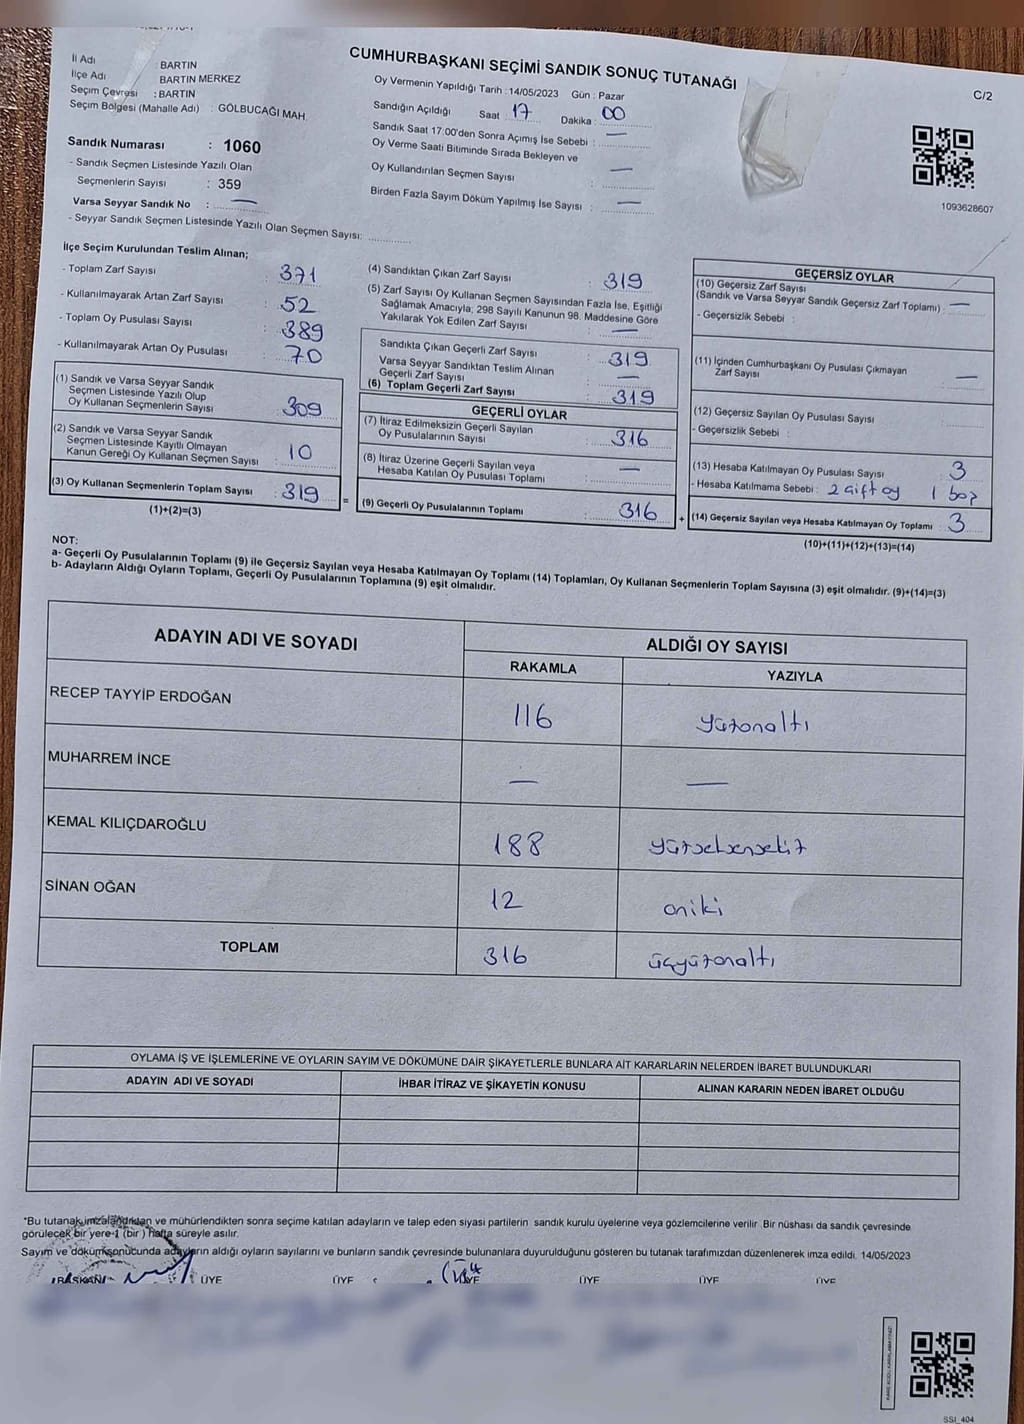 CUMHURBAŞKANI SEÇİMİ SANDIK SONUÇ TUTANAĞI
C/2
İl Adı : BARTIN
İlçe Adı BARTIN MERKEZ
Seçim Çevresi : BARTIN
Seçim Bölgesi (Mahalle Adı) : GÖLBUCAĞI MAH.
Sandık Numarası : 1060
- Sandık Seçmen Listesinde Yazılı Olan
Seçmenlerin Sayısı : 359
Varsa Seyyar Sandık No : —
- Seyyar Sandık Seçmen Listesinde Yazılı Olan Seçmen Sayısı:
Oy Vermenin Yapıldığı Tarih : 14/05/2023 Gün : Pazar
Sandığın Açıldığı Saat 17 Dakika : 00
Sandık Saat 17:00'den Sonra Açımış İse Sebebi : —
Oy Verme Saati Bitiminde Sırada Bekleyen ve
Oy Kullandırılan Seçmen Sayısı : —
Birden Fazla Sayım Döküm Yapılmış İse Sayısı : —
1093628607
İlçe Seçim Kurulundan Teslim Alınan;
- Toplam Zarf Sayısı : 371
- Kullanılmayarak Artan Zarf Sayısı : 52
- Toplam Oy Pusulası Sayısı : 389
- Kullanılmayarak Artan Oy Pusulası : 70
(1) Sandık ve Varsa Seyyar Sandık
Seçmen Listesinde Yazılı Olup
Oy Kullanan Seçmenlerin Sayısı : 309
(2) Sandık ve Varsa Seyyar Sandık
Seçmen Listesinde Kayıtlı Olmayan
Kanun Gereği Oy Kullanan Seçmen Sayısı : 10
(3) Oy Kullanan Seçmenlerin Toplam Sayısı : 319
(1)+(2)=(3)
=
(4) Sandıktan Çıkan Zarf Sayısı : 319
(5) Zarf Sayısı Oy Kullanan Seçmen Sayısından Fazla İse, Eşitliği
Sağlamak Amacıyla; 298 Sayılı Kanunun 98. Maddesine Göre
Yakılarak Yok Edilen Zarf Sayısı : —
Sandıkta Çıkan Geçerli Zarf Sayısı : 319
Varsa Seyyar Sandıktan Teslim Alınan
Geçerli Zarf Sayısı : —
(6) Toplam Geçerli Zarf Sayısı : 319
GEÇERLİ OYLAR
(7) İtiraz Edilmeksizin Geçerli Sayılan
Oy Pusulalarının Sayısı : 316
(8) İtiraz Üzerine Geçerli Sayılan veya
Hesaba Katılan Oy Pusulası Toplamı : —
(9) Geçerli Oy Pusulalarının Toplamı : 316
+
GEÇERSİZ OYLAR
(10) Geçersiz Zarf Sayısı
(Sandık ve Varsa Seyyar Sandık Geçersiz Zarf Toplamı) : —
- Geçersizlik Sebebi :
(11) İçinden Cumhurbaşkanı Oy Pusulası Çıkmayan
Zarf Sayısı : —
(12) Geçersiz Sayılan Oy Pusulası Sayısı :
- Geçersizlik Sebebi :
(13) Hesaba Katılmayan Oy Pusulası Sayısı : 3
- Hesaba Katılmama Sebebi : 2 çift oy 1 boş
(14) Geçersiz Sayılan veya Hesaba Katılmayan Oy Toplamı : 3
(10)+(11)+(12)+(13)=(14)
NOT:
a- Geçerli Oy Pusulalarının Toplamı (9) ile Geçersiz Sayılan veya Hesaba Katılmayan Oy Toplamı (14) Toplamları, Oy Kullanan Seçmenlerin Toplam Sayısına (3) eşit olmalıdır. (9)+(14)=(3)
b- Adayların Aldığı Oyların Toplamı, Geçerli Oy Pusulalarının Toplamına (9) eşit olmalıdır.
ADAYIN ADI VE SOYADI ALDIĞI OY SAYISI
RAKAMLA YAZIYLA
RECEP TAYYİP ERDOĞAN 116 yüzonaltı
MUHARREM İNCE — —
KEMAL KILIÇDAROĞLU 188 yüzseksensekiz
SİNAN OĞAN 12 oniki
TOPLAM 316 üçyüzonaltı
OYLAMA İŞ VE İŞLEMLERİNE VE OYLARIN SAYIM VE DÖKÜMÜNE DAİR ŞİKAYETLERLE BUNLARA AİT KARARLARIN NELERDEN İBARET BULUNDUKLARI
ADAYIN ADI VE SOYADI İHBAR İTİRAZ VE ŞİKAYETİN KONUSU ALINAN KARARIN NEDEN İBARET OLDUĞU
*Bu tutanak imzalandıktan ve mühürlendikten sonra seçime katılan adayların ve talep eden siyasi partilerin sandık kurulu üyelerine veya gözlemcilerine verilir. Bir nüshası da sandık çevresinde
görülecek bir yere 1 (bir) hafta süreyle asılır.
Sayım ve döküm sonucunda adayların aldığı oyların sayılarını ve bunların sandık çevresinde bulunanlara duyurulduğunu gösteren bu tutanak tarafımızdan düzenlenerek imza edildi. 14/05/2023
BAŞKAN ÜYE ÜYE ÜYE ÜYE ÜYE ÜYE
SSİ_404